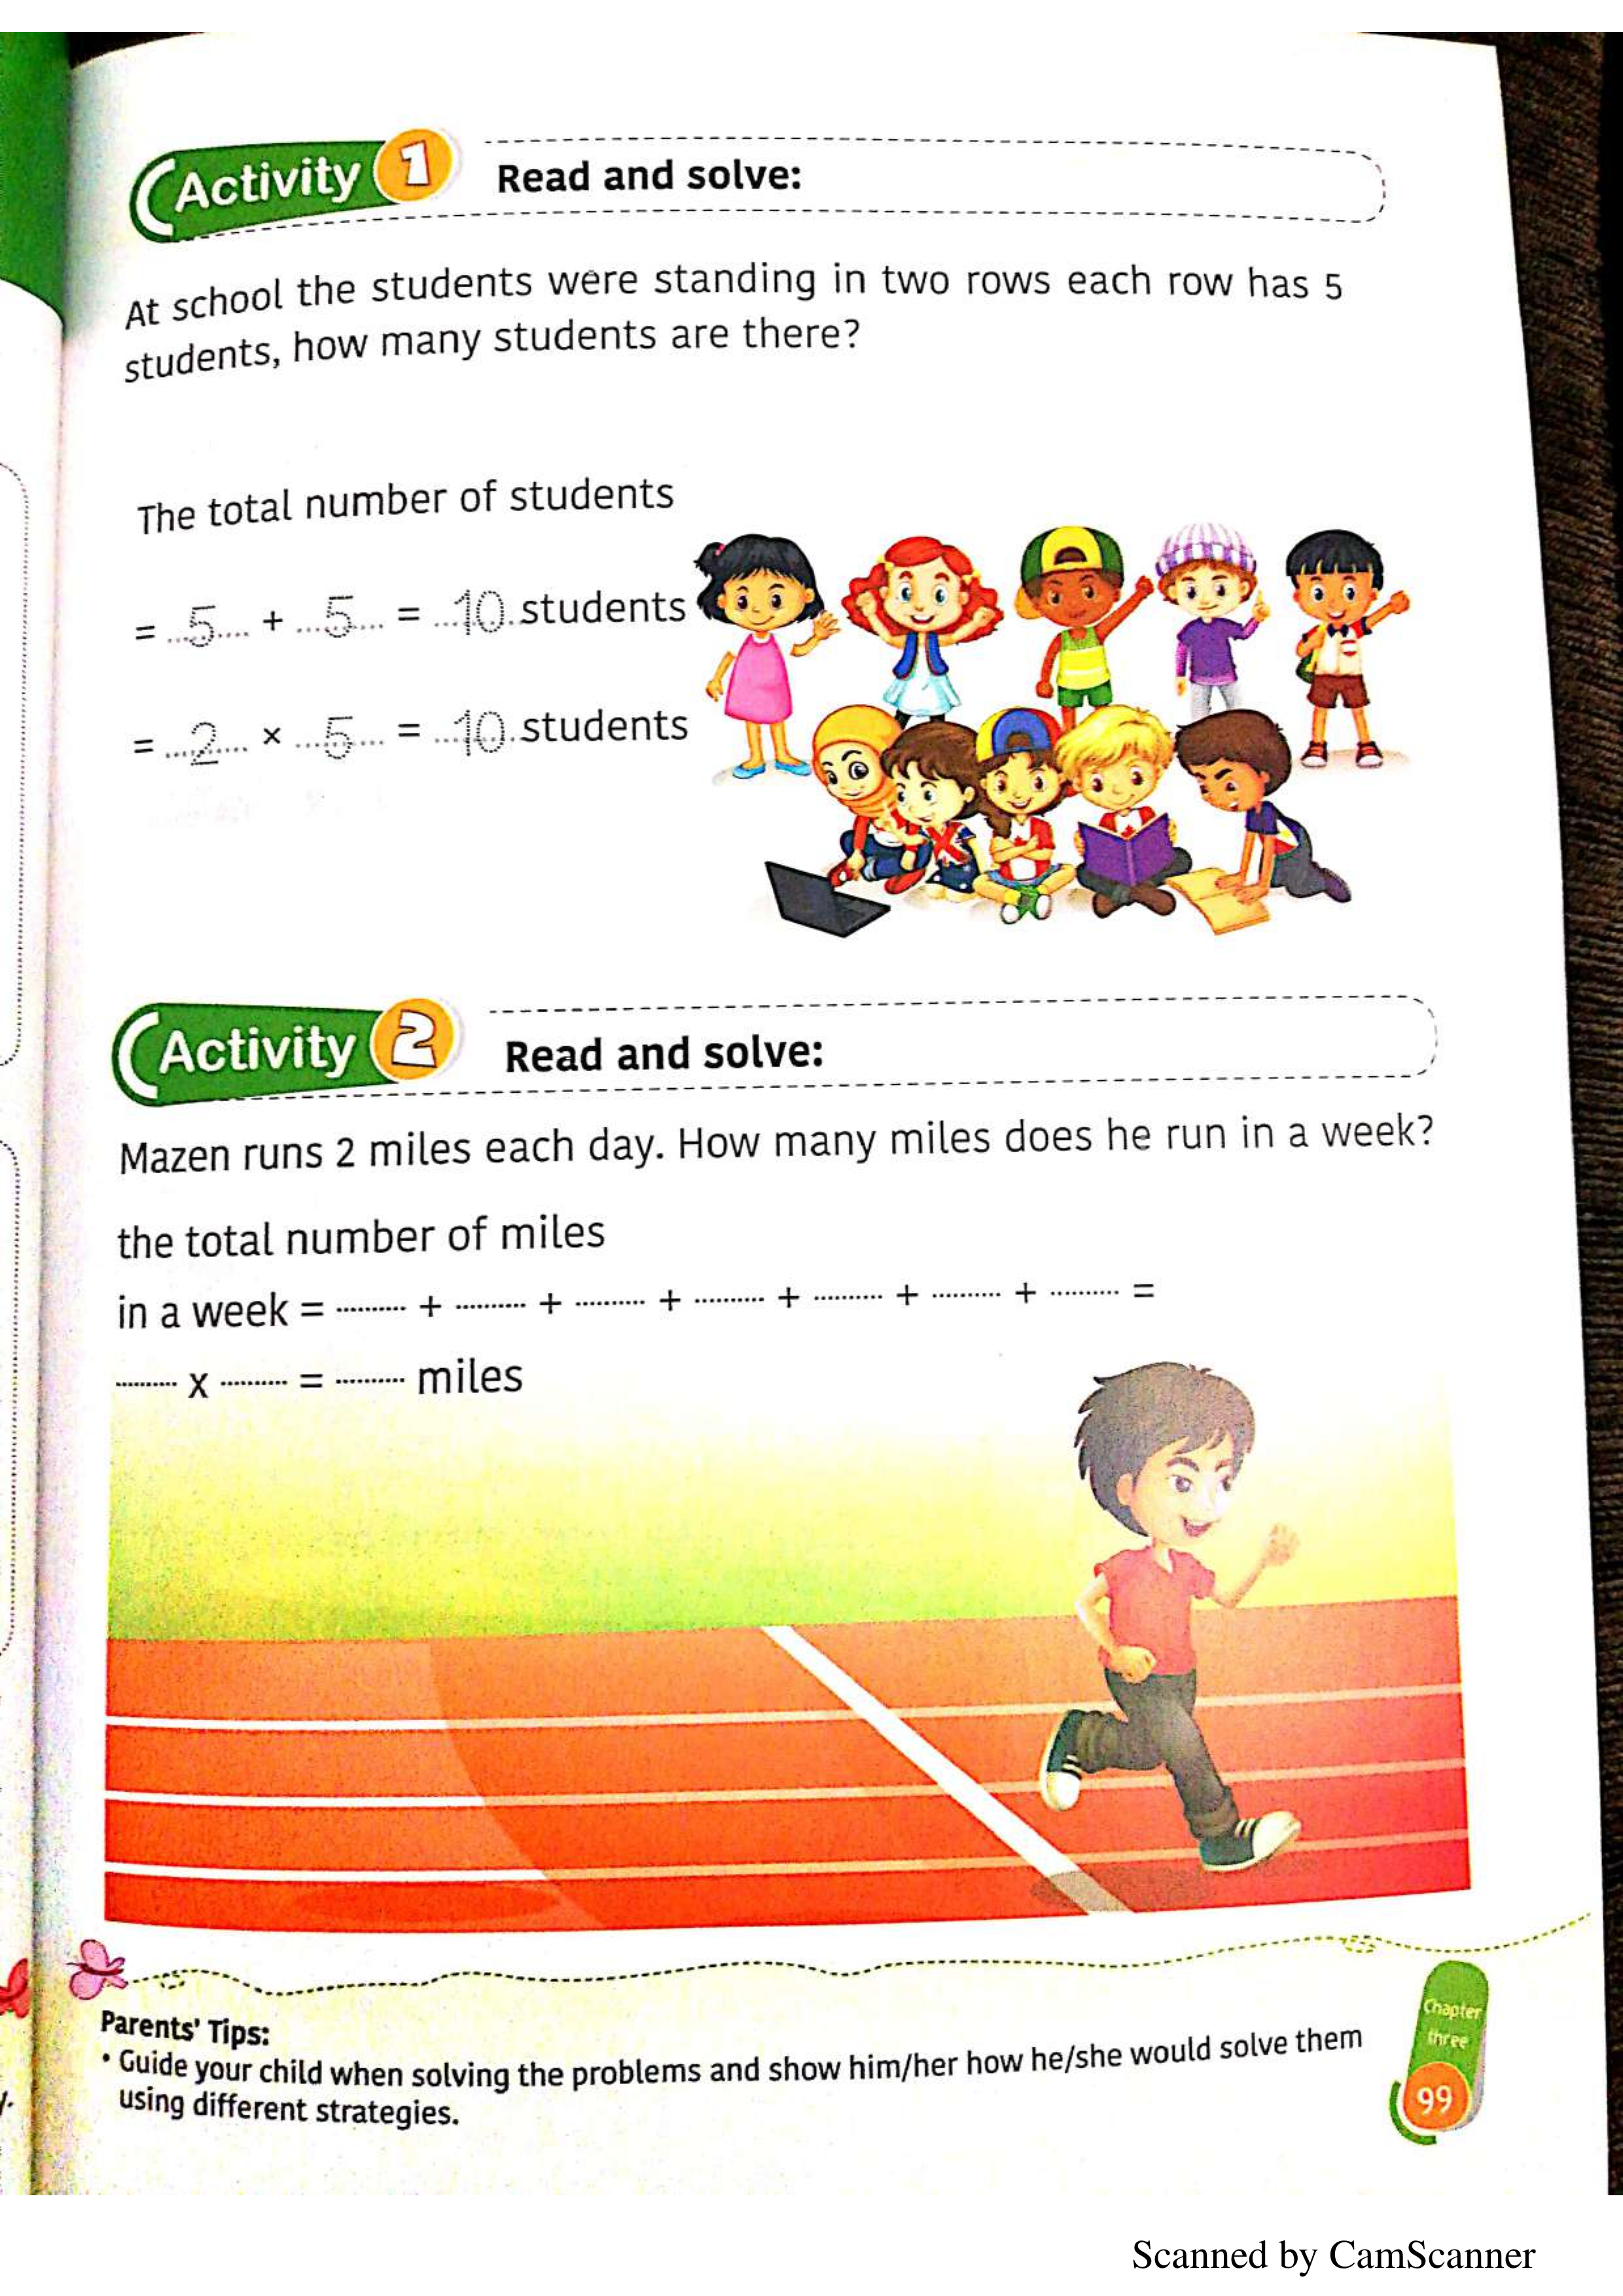 Activity 1 Read and solve:
At school the students were standing in two rows each row has 5
students, how many students are there?
The total number of students
= ...5.... + ...5... = ...10. students
= ...2.... × ...5... = ...10. students
Activity 2 Read and solve:
Mazen runs 2 miles each day. How many miles does he run in a week?
the total number of miles
in a week = .......... + .......... + .......... + .......... + .......... + .......... + .......... =
.......... x .......... = .......... miles
Parents' Tips:
• Guide your child when solving the problems and show him/her how he/she would solve them
using different strategies.
Chapter
three
99
Scanned by CamScanner